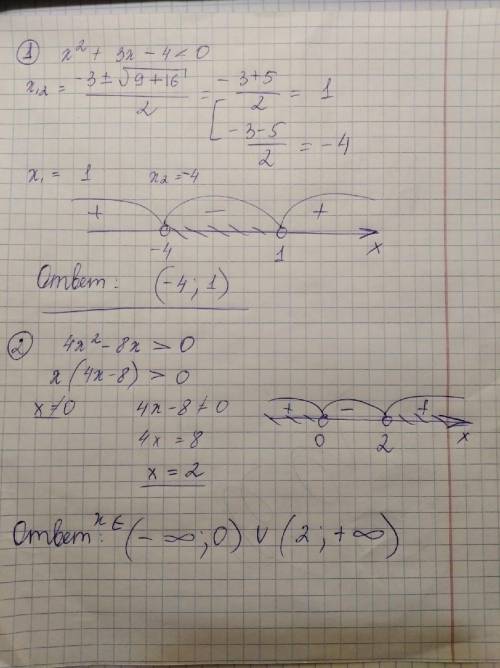 ① x² + 3x - 4 < 0
x₁,₂ = (-3 ± √(9+16))/2 = [ (-3+5)/2 = 1
(-3-5)/2 = -4
x₁ = 1 x₂ = -4
+ - +
-4 1 x
Ответ: (-4; 1)
② 4x² - 8x > 0
x(4x-8) > 0
x ≠ 0 4x-8 ≠ 0
4x = 8
x = 2
+ - +
0 2 x
Ответ: x ∈ (-∞; 0) ∪ (2; +∞)